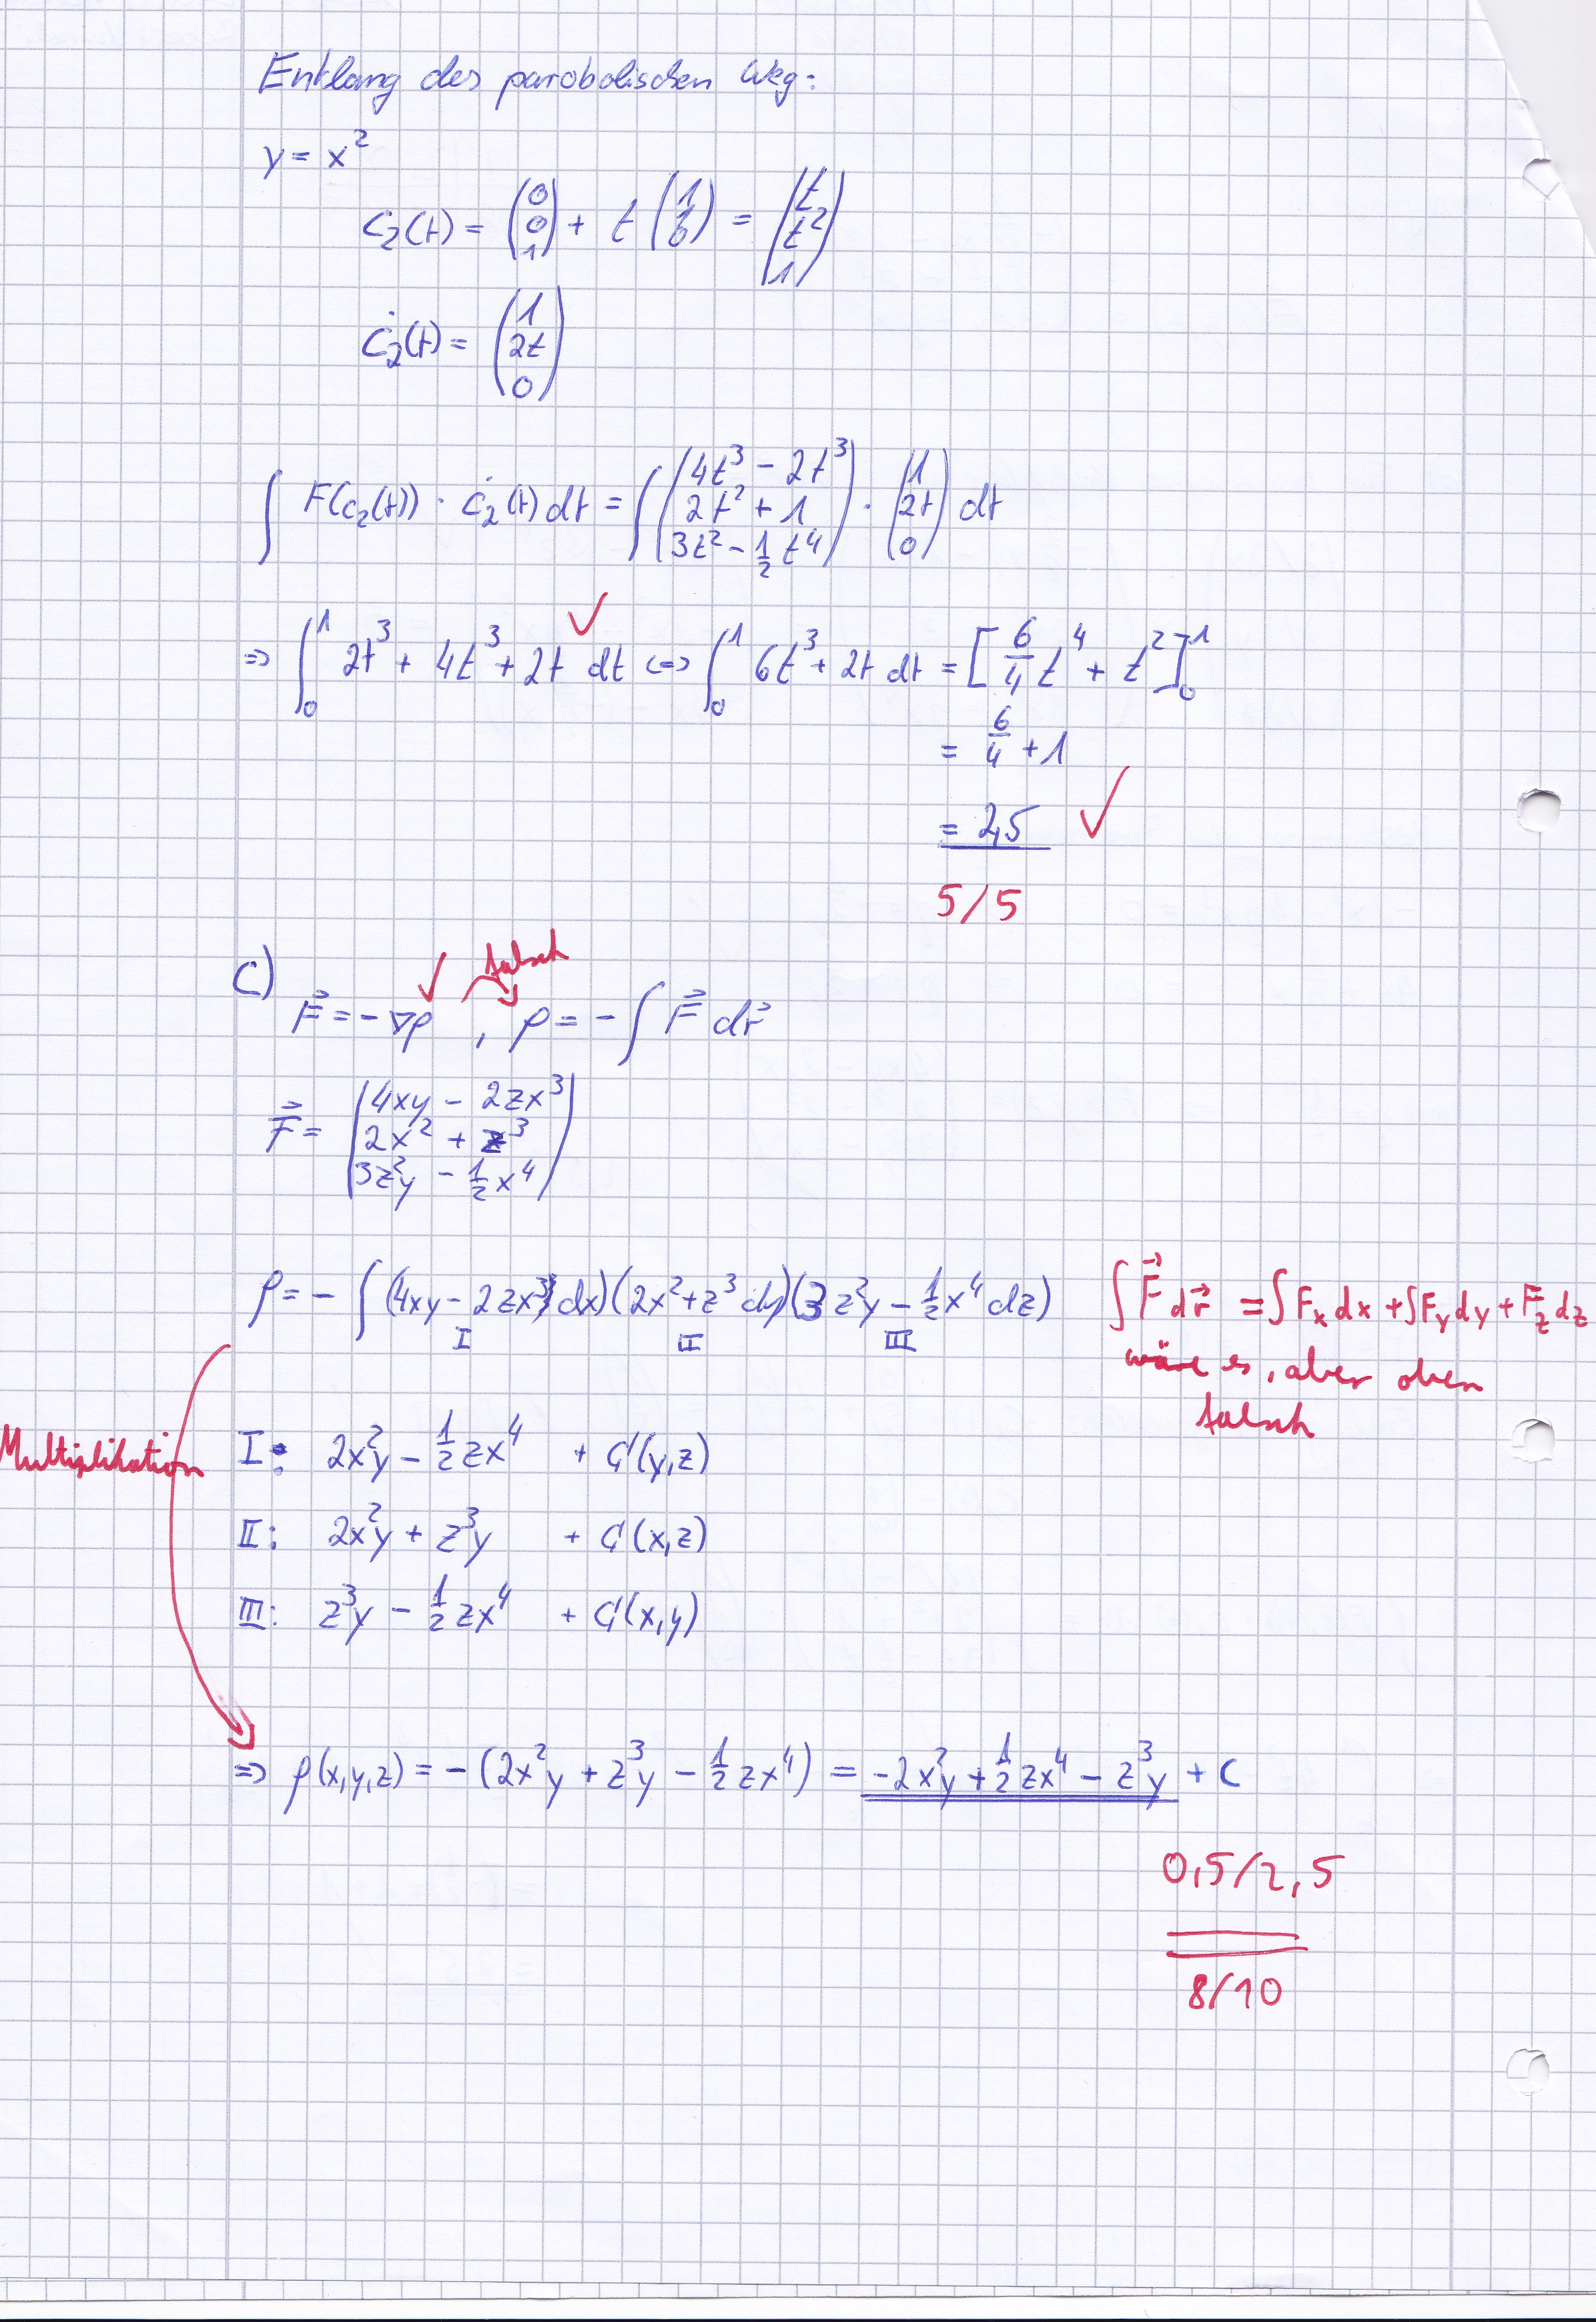 Entlang des parabolischen Weg:
y = x²
C₂(t) = (0 0 1) + t (1 t) = (t t² 1)
Ċ₂(t) = (1 2t 0)
∫ F(c₂(t)) · ċ₂(t) dt = ∫ (4t³ - 2t³ 2t² + 1 3t² - 1/2 t⁴) · (1 2t 0) dt
✓
⇒ ∫₀¹ 2t³ + 4t³ + 2t dt ⇔ ∫₀¹ 6t³ + 2t dt = [6/4 t⁴ + t²]₀¹
= 6/4 + 1
= 2,5 ✓
5/5
✓ falsch
c) F⃗ = -∇φ , φ = - ∫ F⃗ dr⃗
F⃗ = (4xy - 2zx³ 2x² + z³ 3z²y - 1/2 x⁴)
φ = - ∫ (4xy - 2zx³) dx)(2x² + z³ dy)(3z²y - 1/2 x⁴ dz) ∫ F⃗ dr⃗ = ∫ Fₓ dx + ∫ F_y dy + F_z dz
I II III
wäre es, aber oben
falsch
Multiplikation
I: 2x²y - 1/2 zx⁴ + C(y,z)
II: 2x²y + z³y + C(x,z)
III: z³y - 1/2 zx⁴ + C(x,y)
⇒ φ(x,y,z) = - (2x²y + z³y - 1/2 zx⁴) = -2x²y + 1/2 zx⁴ - z³y + C
0,5/2,5
8/10